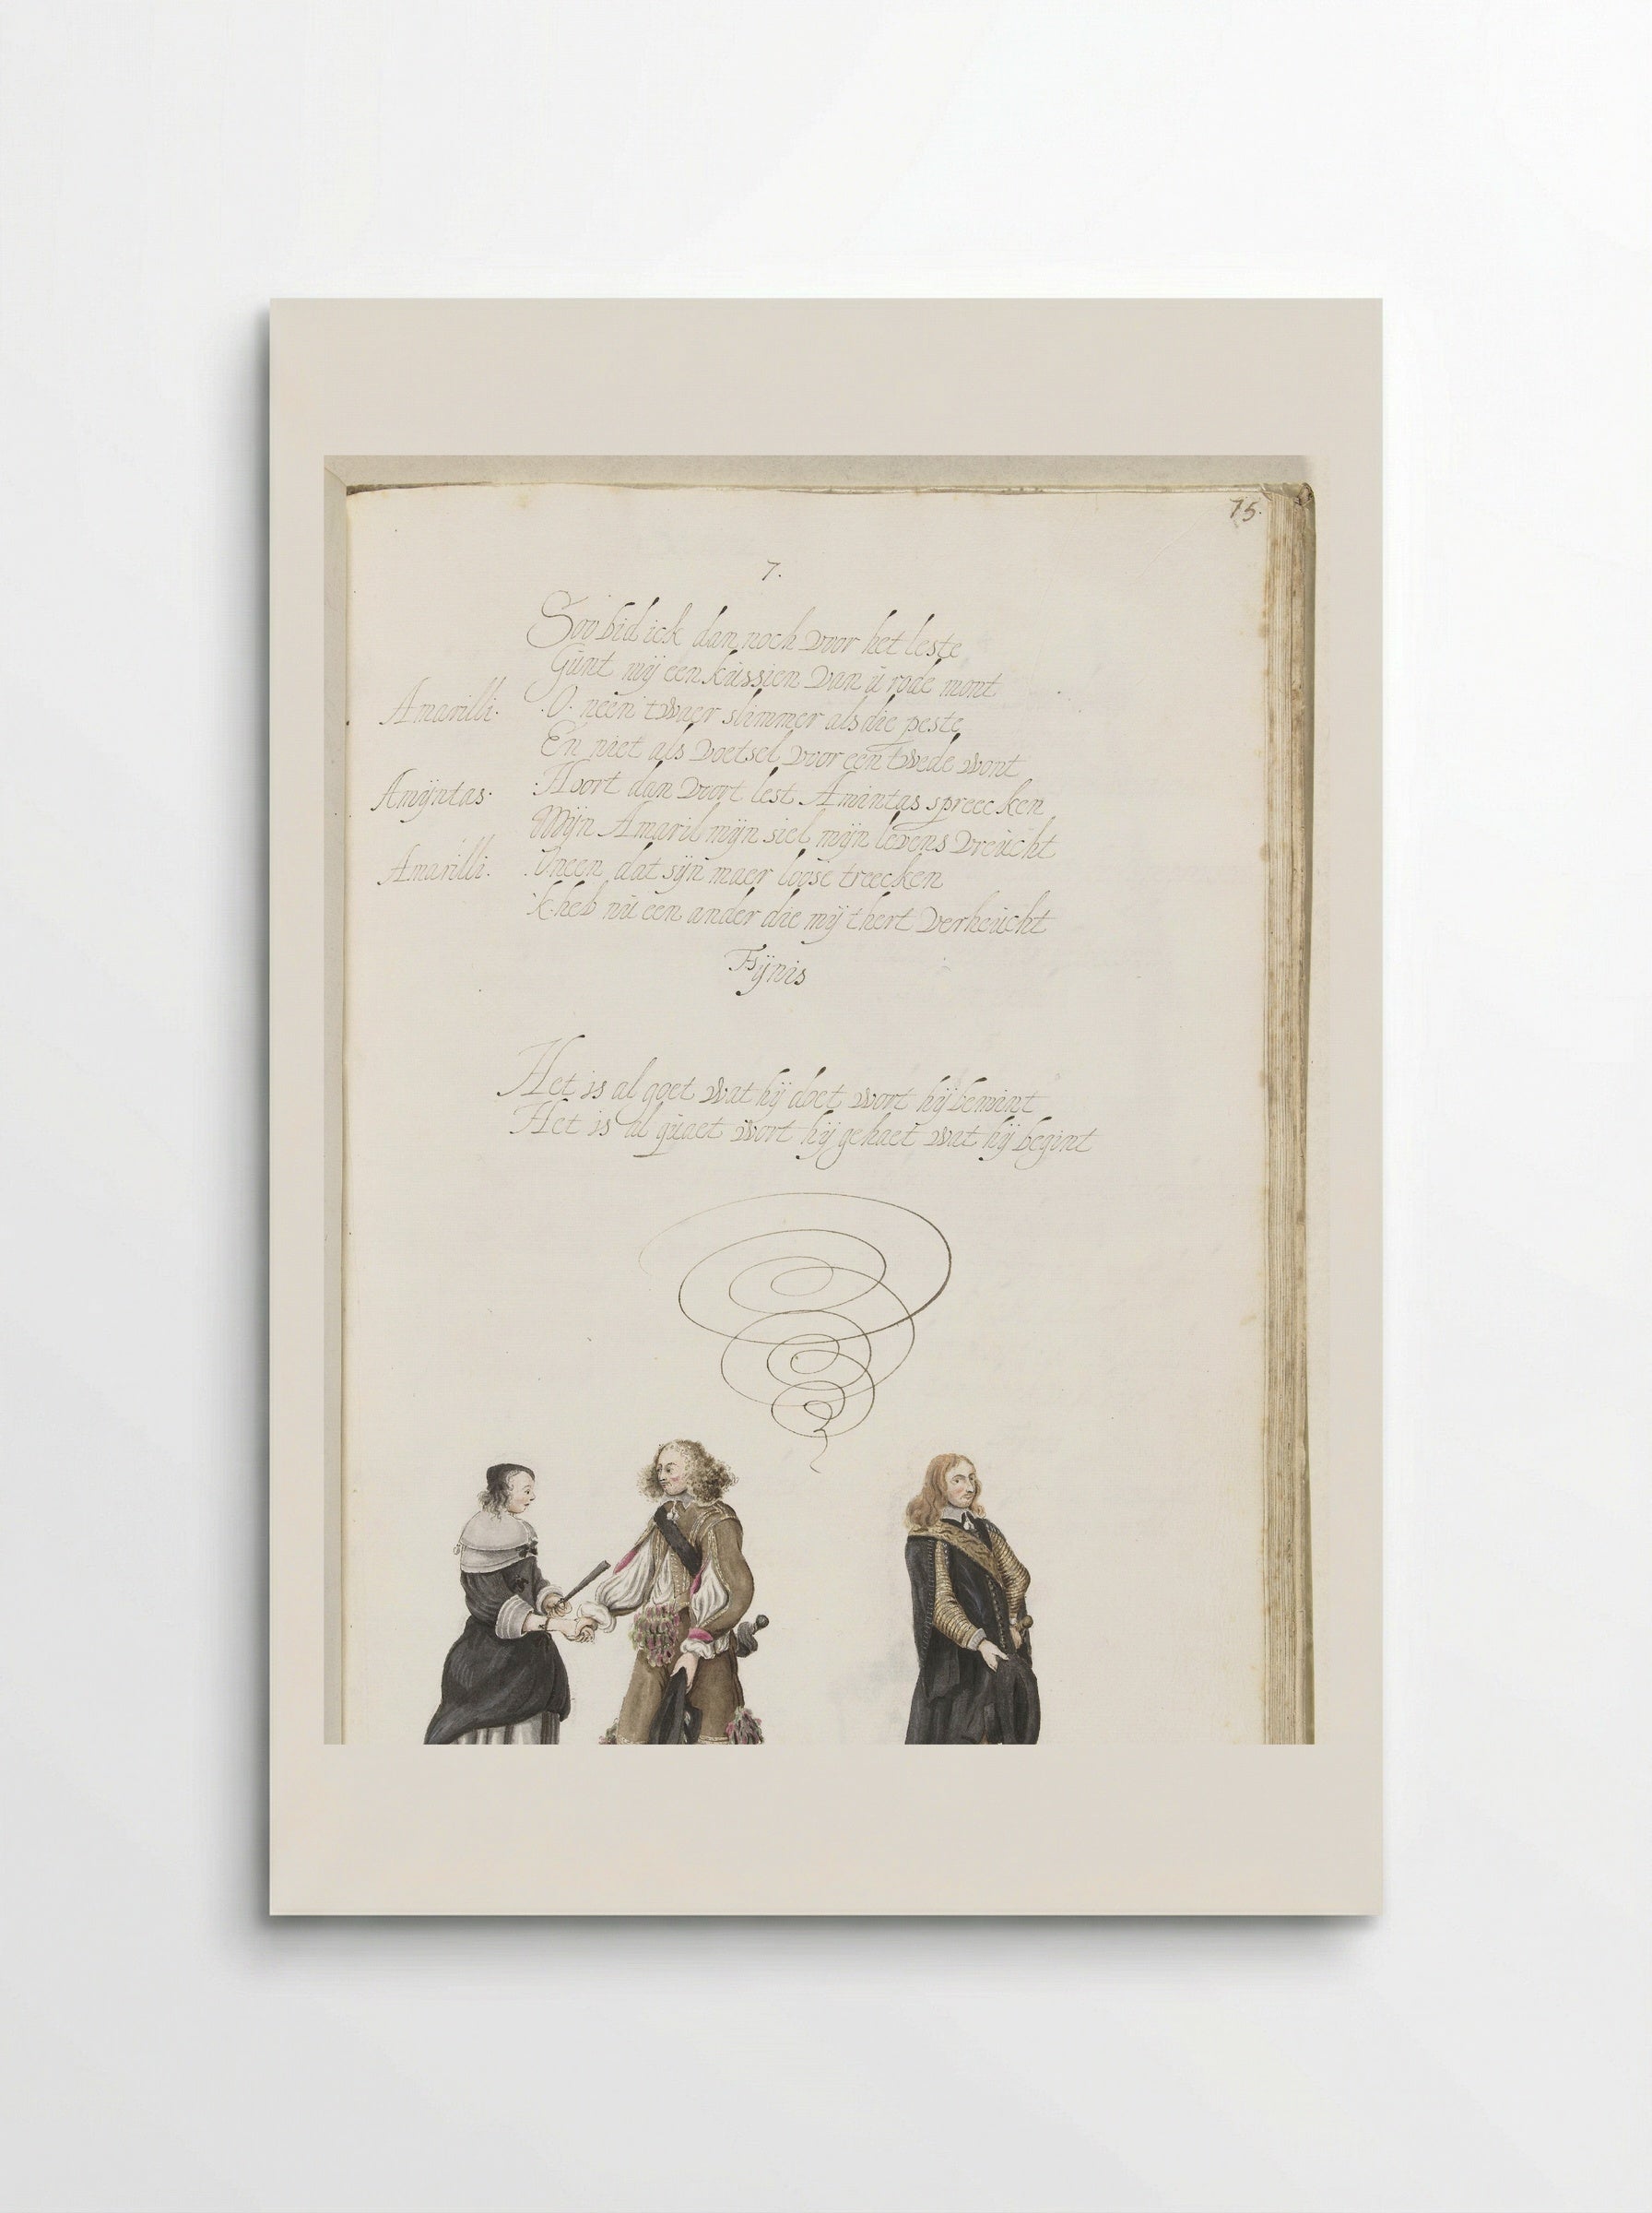 75.
7.
Soo bid ick dan noch voor het leste
Gunt mij een kussien van ü rode mont
Amarilli. O. neen twaer slimmer als die peste
En niet als voetsel voor een twede wont
Amÿntas. Hoort dan voort lest Amintas spreecken
Mijn Amaril mijn siel mijn levens vreücht
Amarilli. O neen dat sÿn maer loose treecken
k. heb nü een ander die mÿ thert verheücht
Fÿnis
Het is al goet wat hÿ doet wort hÿ bemint
Het is al qüaet wort hÿ gehaet wat hÿ begint